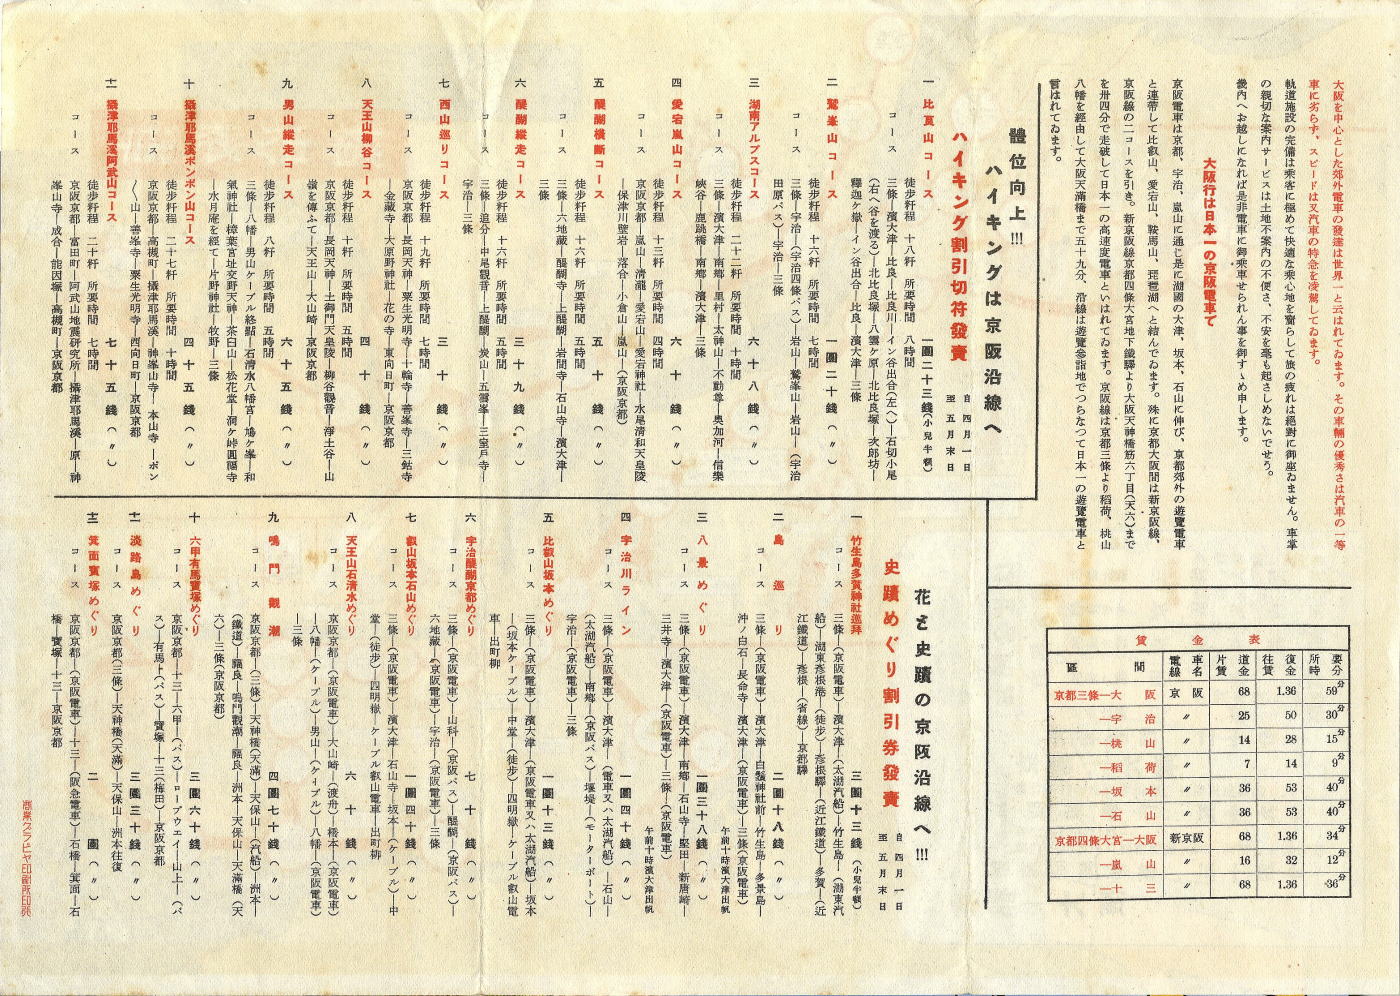 大阪を中心とした郊外電車の發達は世界一と云はれてゐます。その車輛の優秀さは汽車の一等
車に劣らず、スピードは又汽車の特急を凌駕してゐます。
軌道施設の完備は乘客に極めて快適な乘心地を齎らして旅の疲れは絕對に御座ゐません。車掌
の親切な案内サービスは土地不案内の不便さ、不安を毫も起さしめないでせう。
畿内へお越しになれば是非電車に御乘車せられん事を御すゝめ申します。
大阪行は日本一の京阪電車で
京阪電車は京都、宇治、嵐山に通じ是に湖國の大津、坂本、石山に伸び、京都郊外の遊覽電車
と連帶して比叡山、愛宕山、鞍馬山、琵琶湖へと結んでゐます。殊に京都大阪間は新京阪線、
京阪線の二コースを引き。新京阪線京都四條大宮地下鐵驛より大阪天神橋筋六丁目(天六)まで
を卅四分で走破して日本一の高速度電車といはれてゐます。京阪線は京都三條より稻荷、桃山
八幡を經由して大阪天滿橋まで五十九分、沿線は遊覽參詣地でつらなつて日本一の遊覽電車と
言はれてゐます。
體位向上!!!
ハイキングは京阪沿線へ
ハイキング割引切符發賣
自 四月一日
至 五月末日
一 比良山コース 一圓二十三錢(小兒半額)
徒步粁程 十八粁 所要時間 八時間
コース 三條—濱大津—比良—比良川—イン谷出合(左へ)—石切小尾
(右へ谷を渡る)—北比良塚—八雲ケ原—北比良塚—次郎坊—
釋迦ケ嶽—イン谷出合—比良—濱大津—三條
二 鷲峯山コース 一圓二十錢(〃)
徒步粁程 十六粁 所要時間 七時間
コース 三條—宇治—(宇治四條バス)—岩山—鷲峯山—岩山—(宇治
田原バス)—宇治—三條
三 湖南アルプスコース 六十八錢(〃)
徒步粁程 二十二粁 所要時間 十時間
コース 三條—濱大津—南鄉—里村—太神山—不動尊—奧加河—信樂
峽谷—鹿跳橋—南鄉—濱大津—三條
四 愛宕嵐山コース 六十錢(〃)
徒步粁程 十三粁 所要時間 四時間
コース 京阪京都—嵐山—清瀧—愛宕山—愛宕神社—水尾清和天皇陵
—保津川壁岩—落合—小倉山—嵐山—(京阪京都)
五 醍醐橫斷コース 五十錢(〃)
徒步粁程 十六粁 所要時間 五時間
コース 三條—六地藏—醍醐寺—上醍醐—岩間寺—石山寺—濱大津—
三條
六 醍醐縱走コース 三十九錢(〃)
徒步粁程 十六粁 所要時間 五時間
コース 三條—追分—中尾觀音—上醍醐—炭山—五雲峯—三室戸寺—
宇治—三條
七 西山巡りコース 三十錢(〃)
徒步粁程 十九粁 所要時間 七時間
コース 京阪京都—長岡天神—粟生光明寺—十輪寺—善峯寺—三鈷寺
—金藏寺—大原野神社—花の寺—東向日町—京阪京都
八 天王山柳谷コース 四十錢(〃)
徒步粁程 十六粁 所要時間 五時間
コース 京阪京都—長岡天神—土御門天皇陵—柳谷觀音—淨土谷—山
嶺を傳ふて—天王山—大山崎—京阪京都
九 男山縱走コース 六十五錢(〃)
徒步粁程 八粁 所要時間 五時間
コース 三條—八幡—男山ケーブル終點—石清水八幡宮—鳩ケ峯—和
氣神社—樟葉宮址交野天神—茶臼山—松花堂—洞ケ峠圓福寺
—水月庵を經て—片野神社—牧野—三條
十 攝津耶馬溪ポンポン山コース 四十五錢(〃)
徒步粁程 二十七粁 所要時間 十時間
コース 京阪京都—高槻町—攝津耶馬溪—神峯山寺—本山寺—ポン
〳〵山—善峯寺—粟生光明寺—西向日町—京阪京都
十一 攝津耶馬溪阿武山コース 七十五錢(〃)
徒步粁程 二十粁 所要時間 七時間
コース 京阪京都—富田町—阿武山地震研究所—攝津耶馬溪—原—神
峯山寺—成合—能因塚—高槻町—京阪京都
花と史蹟の京阪沿線へ!!!
史蹟めぐり割引券發賣
自 四月一日
至 五月末日
一 竹生島多賀神社巡拜 三圓十三錢(小兒半額)
コース 三條—(京阪電車)—濱大津—(太湖汽船)—竹生島—(湖東汽
船)—湖東彥根港—(徒步)—彥根驛—(近江鐵道)—多賀—(近
江鐵道)—彥根—(省線)—京都驛
二 島巡り 二圓十八錢(〃)
コース 三條—(京阪電車)—濱大津—白鬚神社前—竹生島—多景島—
沖ノ白石—長命寺—濱大津—(京阪電車)—三條(京阪電車)
午前十時濱大津出帆
三 八景めぐり 一圓三十八錢(〃)
コース 三條—(京阪電車)—濱大津—南鄉—石山寺—堅田—新唐崎—
三井寺—濱大津—(京阪電車)—三條—(京阪電車)
午前十時濱大津出帆
四 宇治川ライン 一圓四十錢(〃)
コース 三條—(京阪電車)—濱大津—(電車又ハ太湖汽船)—石山—
(太湖汽船)—南鄉—(京阪バス)—堰堤—(モーターボート)—
宇治—(京阪電車)—三條
五 比叡山坂本めぐり 一圓十三錢(〃)
コース 三條—(京阪電車)—濱大津—(京阪電車又ハ太湖汽船)—坂本
—(坂本ケーブル)—中堂—(徒步)—四明嶽—ケーブル叡山電
車—出町柳
六 宇治醍醐京都めぐり 七十錢(〃)
コース 三條—(京阪電車)—山科—(京阪バス)—醍醐—(京阪バス)—
六地藏—(京阪電車)—宇治—(京阪電車)—三條
七 叡山坂本石山めぐり 一圓四十錢(〃)
コース 三條—(京阪電車)—濱大津—石山寺—坂本—(ケーブル)—中
堂—(徒步)—四明嶽—ケーブル叡山電車—出町柳
八 天王山石清水めぐり 六十錢(〃)
コース 京阪京都—(京阪電車)—大山崎—(渡舟)—橋本—(京阪電車)
—八幡—(ケーブル)—男山—(ケーブル)—八幡—(京阪電車)
—三條
九 鳴門觀潮 四圓七十錢(〃)
コース 京阪京都—(三條)—天神橋(天滿)—天保山—(汽船)—洲本—
(鐵道)—福良—鳴門觀潮—福良—洲本—天保山—天滿橋—(天
六)—三條(京阪京都)
十 六甲有馬寶塚めぐり 三圓六十錢(〃)
コース 京阪京都—十三—六甲—(バス)—ロープウエイ—山上—(バ
ス)—有馬—(バス)—寶塚—十三(梅田)—京阪京都
十一 淡路島めぐり 三圓三十錢(〃)
コース 京阪京都(三條)—天神橋(天滿)—天保山—洲本往復
十二 箕面寶塚めぐり 二圓(〃)
コース 京阪京都—(京阪電車)—十三—(阪急電車)—石橋—箕面—石
橋—寶塚—十三—京阪京都
賃金表
區間 電車線名 片道賃金 往復賃金 所要時分
京都三條—大阪 京阪 68 1.36 59分
—宇治 〃 25 50 30分
—桃山 〃 14 28 15分
—稻荷 〃 7 14 9分
—坂本 〃 36 53 40分
—石山 〃 36 53 40分
京都四條大宮—大阪 新京阪 68 1.36 34分
—嵐山 〃 16 32 12分
—十三 〃 68 1.36 36分
商業グラビヤ印刷所印発